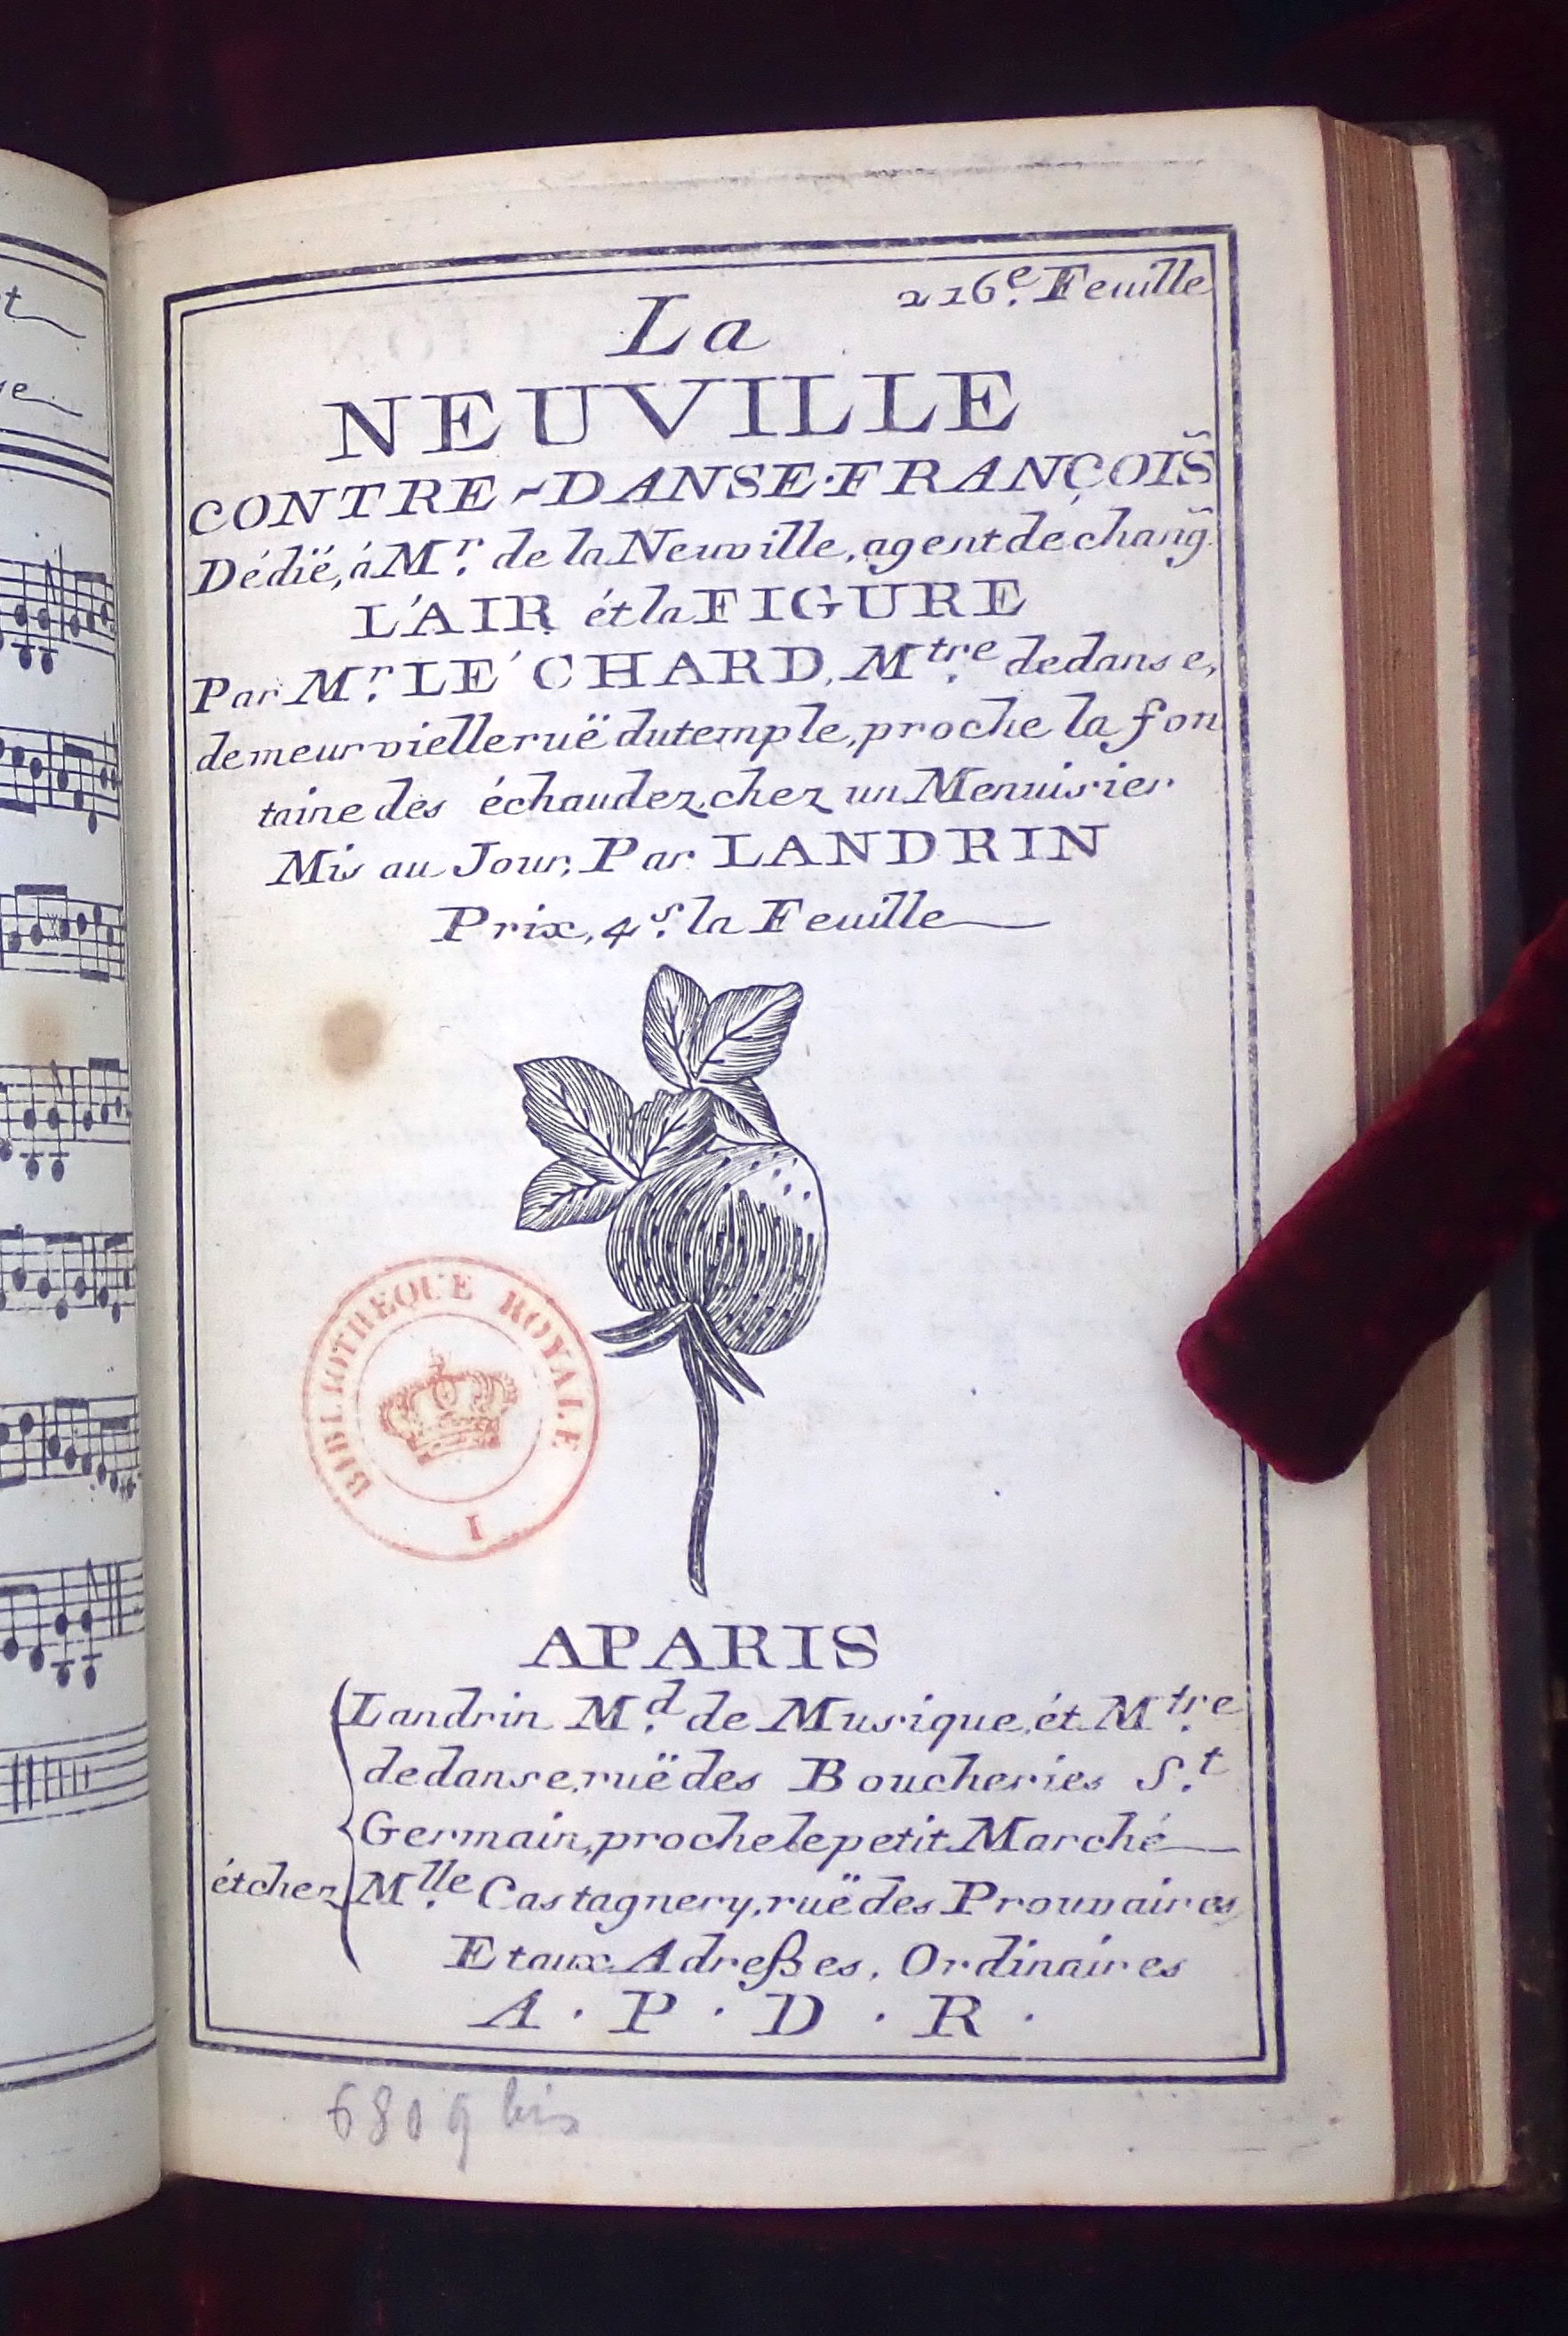 216.e Feuille
La
NEUVILLE
CONTRE-DANSE·FRANÇOIS̃
Dédïé, á M.r de la Neuville, agent de chang̃
L'AIR ét la FIGURE
Par M.r LE´CHARD, M.tre de danse,
demeur vielle ruë du temple, proche la fon
taine des échaudez, chez un Menuisier
Mis au Jour, Par LANDRIN
Prix, 4.s la Feuille
BIBLIOTHEQUE ROYALE
I
A PARIS
Landrin M.d de Musique, ét M.tre
de danse, ruë des Boucheries S.t
Germain, proche le petit Marché
ét chez M.lle Castagnery, ruë des Prouvaires
Et aux Adreßes, Ordinaires
A · P · D · R ·
6809 bis